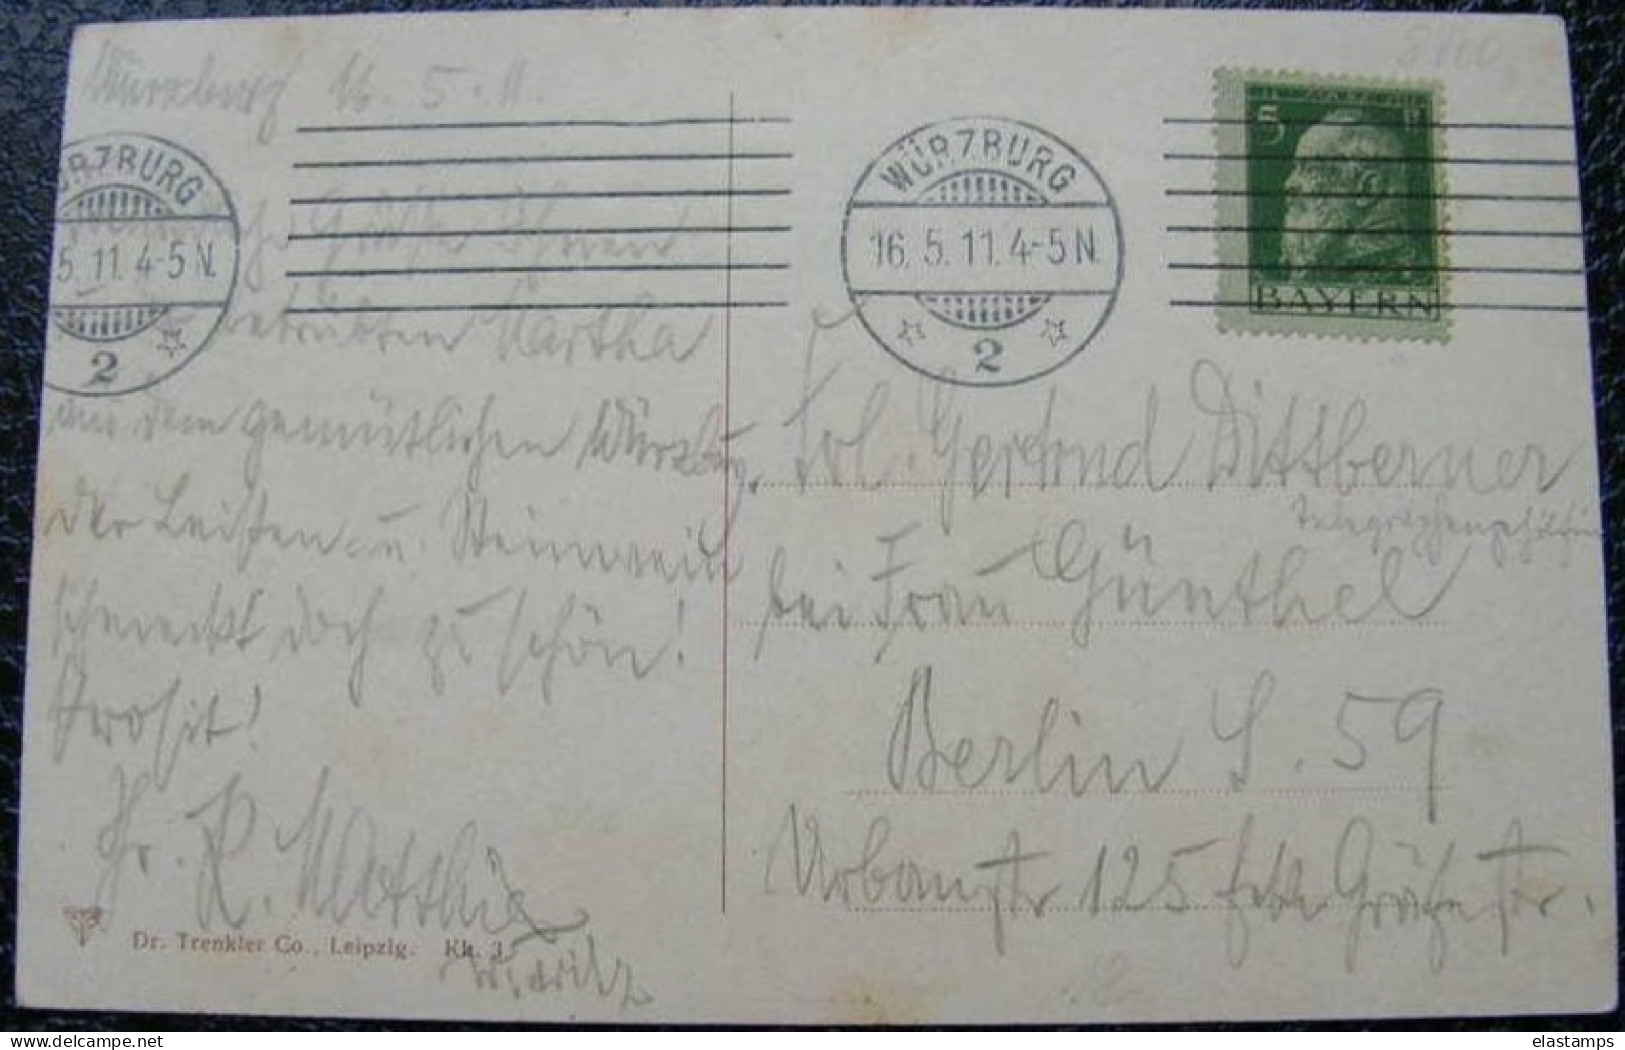 Würzburg 16.5.11.
WÜRZBURG
16.5.11.4-5N.
2
WÜRZBURG
5.11.4-5N.
2
5
BAYERN
Grüße Ihnen
betrübten Martha
aus dem gemütlichen Würzburg,
der Leisten u. Steinwein
schmeckt doch zu schön!
Prosit!
Gr. R. Matthi
Frl. Gertrud Dittberner
bei Frau Günthel
Berlin S. 59
Urbanstr 125 Ecke Gräfestr.
Dr. Trenkler Co., Leipzig. Kh. 3
elastamps